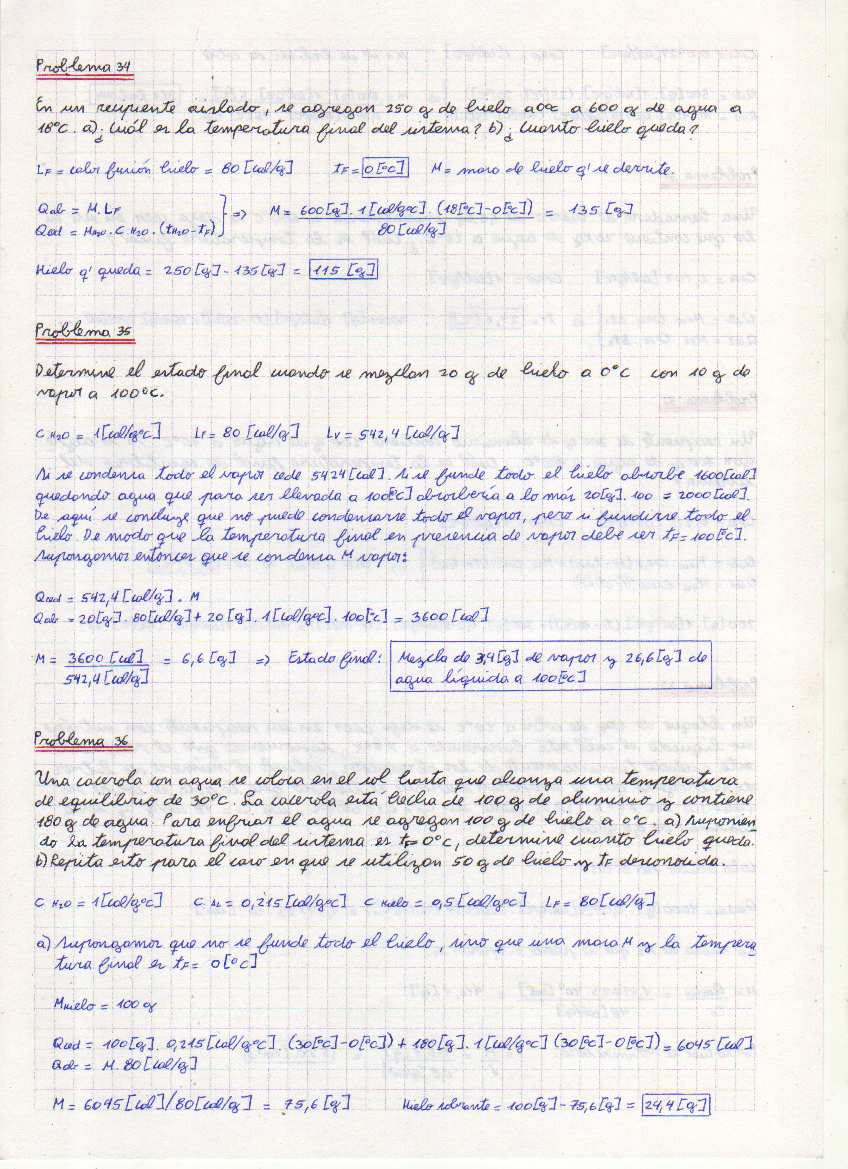 Problema 34
En un recipiente aislado, se agregan 250 g de hielo a 0°C a 600 g de agua a
18°C. a) ¿Cuál es la temperatura final del sistema? b) ¿Cuanto hielo queda?
LF = calor fusión hielo = 80 [cal/g] tF = 0[°C] M = masa de hielo q' se derrite.
Qab = M. LF
Qced = MH2O . C H2O . (tH2O - tF)
=> M = 600[g] . 1[cal/g°C] . (18[°C]-0[°C]) = 135 [g]
80[cal/g]
Hielo q' queda = 250[g] - 135[g] = 115 [g]
Problema 35
Determine el estado final cuando se mezclan 20 g de hielo a 0°C con 10 g de
vapor a 100°C.
C H2O = 1[cal/g°C] LF = 80 [cal/g] LV = 542,4 [cal/g]
Si se condensa todo el vapor cede 5424[cal]. Si se funde todo el hielo absorbe 1600[cal]
quedando agua que para ser llevada a 100[°C] absorbería a lo más 20[g]. 100 = 2000[cal].
De aquí se concluye que no puede condensarse todo el vapor, pero si fundirse todo el
hielo. De modo que la temperatura final en presencia de vapor debe ser tF = 100[°C].
Supongamos entonces que se condensa M vapor:
Qced = 542,4[cal/g] . M
Qab = 20[g]. 80[cal/g] + 20 [g]. 1[cal/g°C] . 100[°C] = 3600 [cal]
M = 3600 [cal] = 6,6 [g] => Estado final: Mezcla de 3,4[g] de vapor y 26,6[g] de
542,4[cal/g] agua líquida a 100[°C]
Problema 36
Una cacerola con agua se coloca en el sol hasta que alcanza una temperatura
de equilibrio de 30°C. La cacerola está hecha de 100 g de aluminio y contiene
180 g de agua. Para enfriar el agua se agregan 100 g de hielo a 0°C. a) Suponien
do la temperatura final del sistema es tF=0°C, determine cuanto hielo queda.
b) Repita esto para el caso en que se utilizan 50 g de hielo y tF desconocida.
C H2O = 1[cal/g°C] C AL = 0,215[cal/g°C] C Hielo = 0,5[cal/g°C] LF = 80[cal/g]
a) Supongamos que no se funde todo el hielo, sino que una masa M y la tempera
tura final es tF = 0[°C]
MHielo = 100 g
Qced = 100[g]. 0,215[cal/g°C] . (30[°C]-0[°C]) + 180[g]. 1[cal/g°C] (30[°C]-0[°C]) = 6045 [cal]
Qab = M. 80[cal/g]
M = 6045 [cal]/80[cal/g] = 75,6[g] Hielo sobrante = 100[g] - 75,6[g] = 24,4[g]